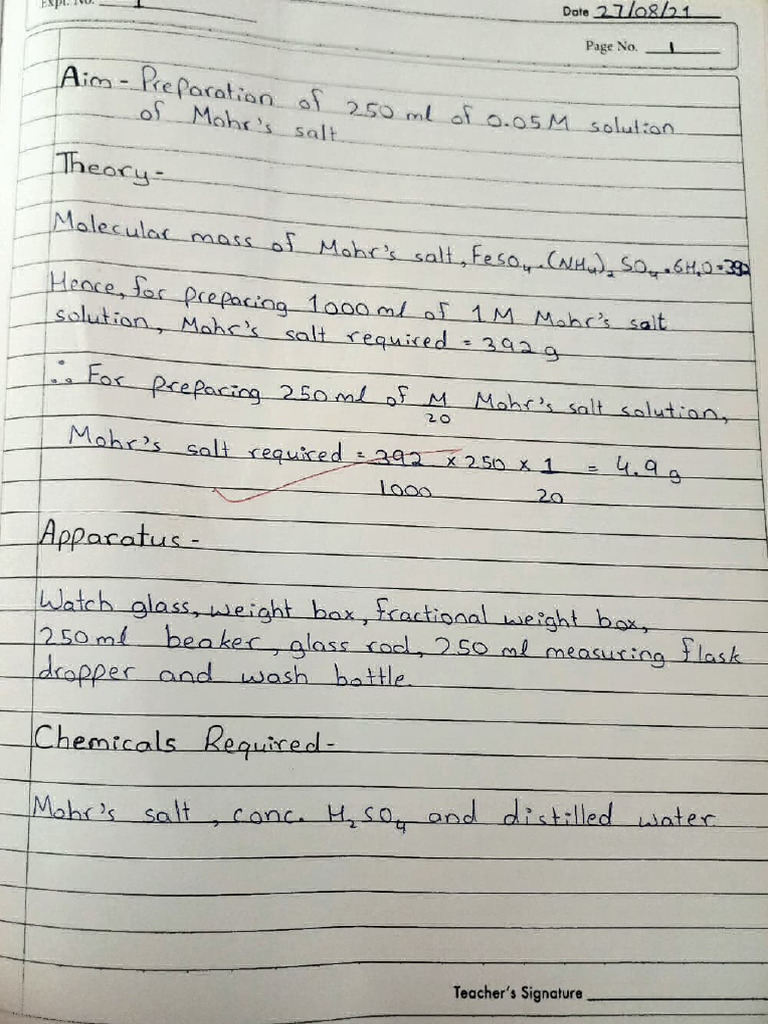 Expt. No. 1
Date 27/08/21
Page No. 1
Aim - Preparation of 250 ml of 0.05M solution
of Mohr's salt
Theory-
Molecular mass of Mohr's salt, FeSO₄.(NH₄)₂SO₄.6H₂O=392
Hence, for preparing 1000ml of 1M Mohr's salt
solution, Mohr's salt required = 392g
∴ For preparing 250ml of M/20 Mohr's salt solution,
Mohr's salt required = 392/1000 × 250 × 1/20 = 4.9g
Apparatus -
Watch glass, weight box, fractional weight box,
250ml beaker, glass rod, 250 ml measuring flask
dropper and wash bottle
Chemicals Required-
Mohr's salt, conc. H₂SO₄ and distilled water
Teacher's Signature